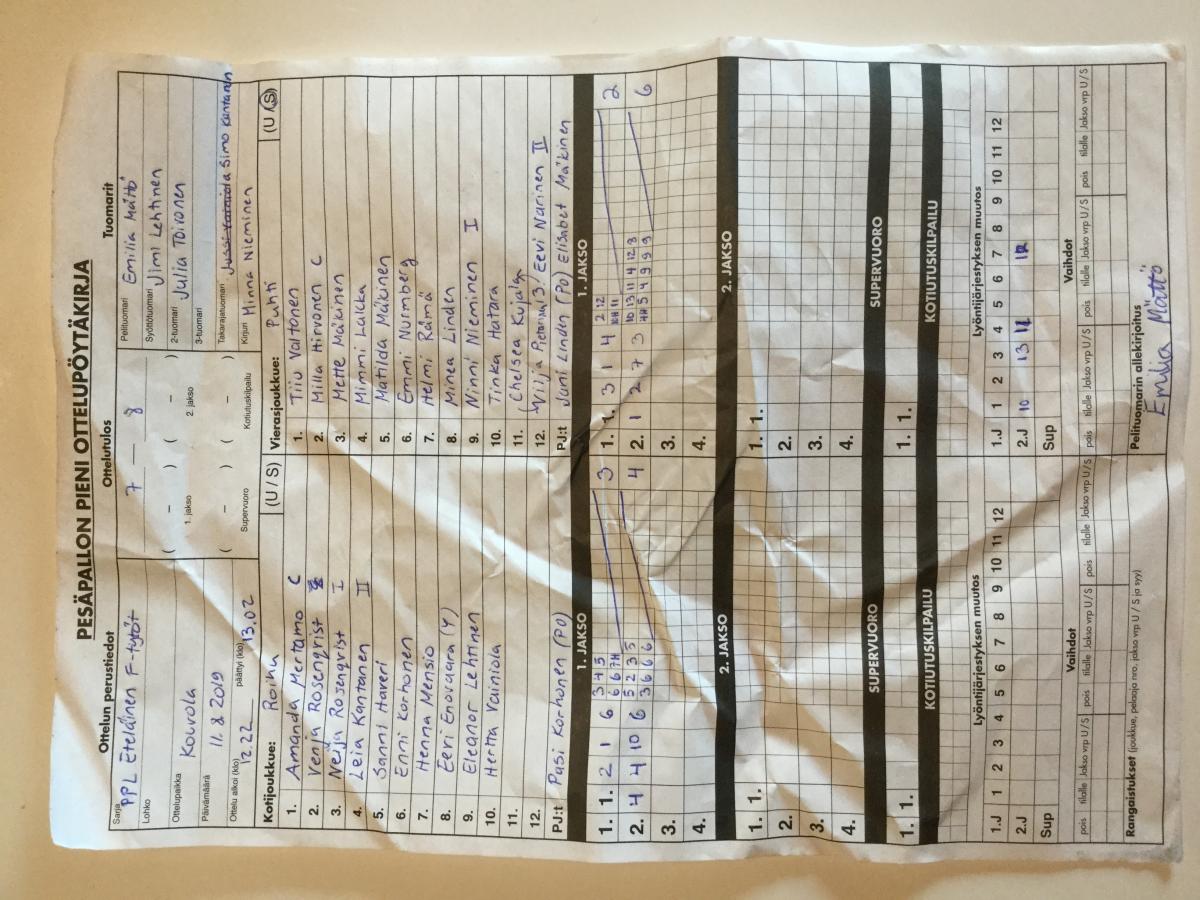 PESÄPALLON PIENI OTTELUPÖYTÄKIRJA
Ottelun perustiedot
Sarja PPL Eteläinen F-tytöt
Lohko
Ottelupaikka Kouvola
Päivämäärä 11.8 2019
Ottelu alkoi (klo) 12.22 päättyi (klo) 13.02
Ottelutulos
7 — 8
( – ) ( – )
1. jakso 2. jakso
( – ) ( – )
Supervuoro Kotiutuskilpailu
Tuomarit
Pelituomari Emilia Mättö
Syöttötuomari Jimi Lehtinen
2-tuomari Julia Toironen
3-tuomari
Takarajatuomari Simo Kantanen
Kirjuri Minna Nieminen
Kotijoukkue: Roihu (U / S)
1. Amanda Mertamo C
2. Venja Rosenqrist
3. Neija Rosenqrist I
4. Leia Kantanen II
5. Sanni Haveri
6. Enni Korhonen
7. Henna Mensio
8. Eevi Enovaara (Y)
9. Eleanor Lehtinen
10. Hertta Vainiola
11.
12.
PJ:t Pasi Korhonen (PO)
Vierasjoukkue: Puhti (U / S)
1. Tiiu Valtonen
2. Milla Hirvonen C
3. Mette Mäkinen
4. Mimmi Lalkka
5. Matilda Mäkinen
6. Emmi Nurmberg
7. Helmi Rämä
8. Minea Linden
9. Ninni Nieminen I
10. Tinka Hatara
11. Chelsea Kujala
12. Vilja 13. Eevi Narinen II
PJ:t Juni Linden (PO) Elisabet Mäkinen
1. JAKSO
1. 1. 2 1 6 3 4 5 3
6 6 7H
2. 4 4 10 6 5 2 3 5 4
3 6 6 6
3.
4.
2. JAKSO
1. 1.
2.
3.
4.
SUPERVUORO
1. 1.
KOTIUTUSKILPAILU
1. JAKSO
1. 1. 3 1 4 2 12 2
11
2. 1 2 7 3 10 13 11 4 12 13 6
5 4 9 9 9
3.
4.
2. JAKSO
1. 1.
2.
3.
4.
SUPERVUORO
1. 1.
KOTIUTUSKILPAILU
Lyöntijärjestyksen muutos
1 2 3 4 5 6 7 8 9 10 11 12
1.J
2.J
Sup
Vaihdot
pois tilalle Jakso vrp U / S pois tilalle Jakso vrp U / S pois tilalle Jakso vrp U / S
Lyöntijärjestyksen muutos
1 2 3 4 5 6 7 8 9 10 11 12
1.J
2.J 10 13 11 12
Sup
Vaihdot
pois tilalle Jakso vrp U / S pois tilalle Jakso vrp U / S pois tilalle Jakso vrp U / S
Rangaistukset (joukkue, pelaaja nro, jakso vrp U / S ja syy)
Pelituomarin allekirjoitus
Emilia Mättö